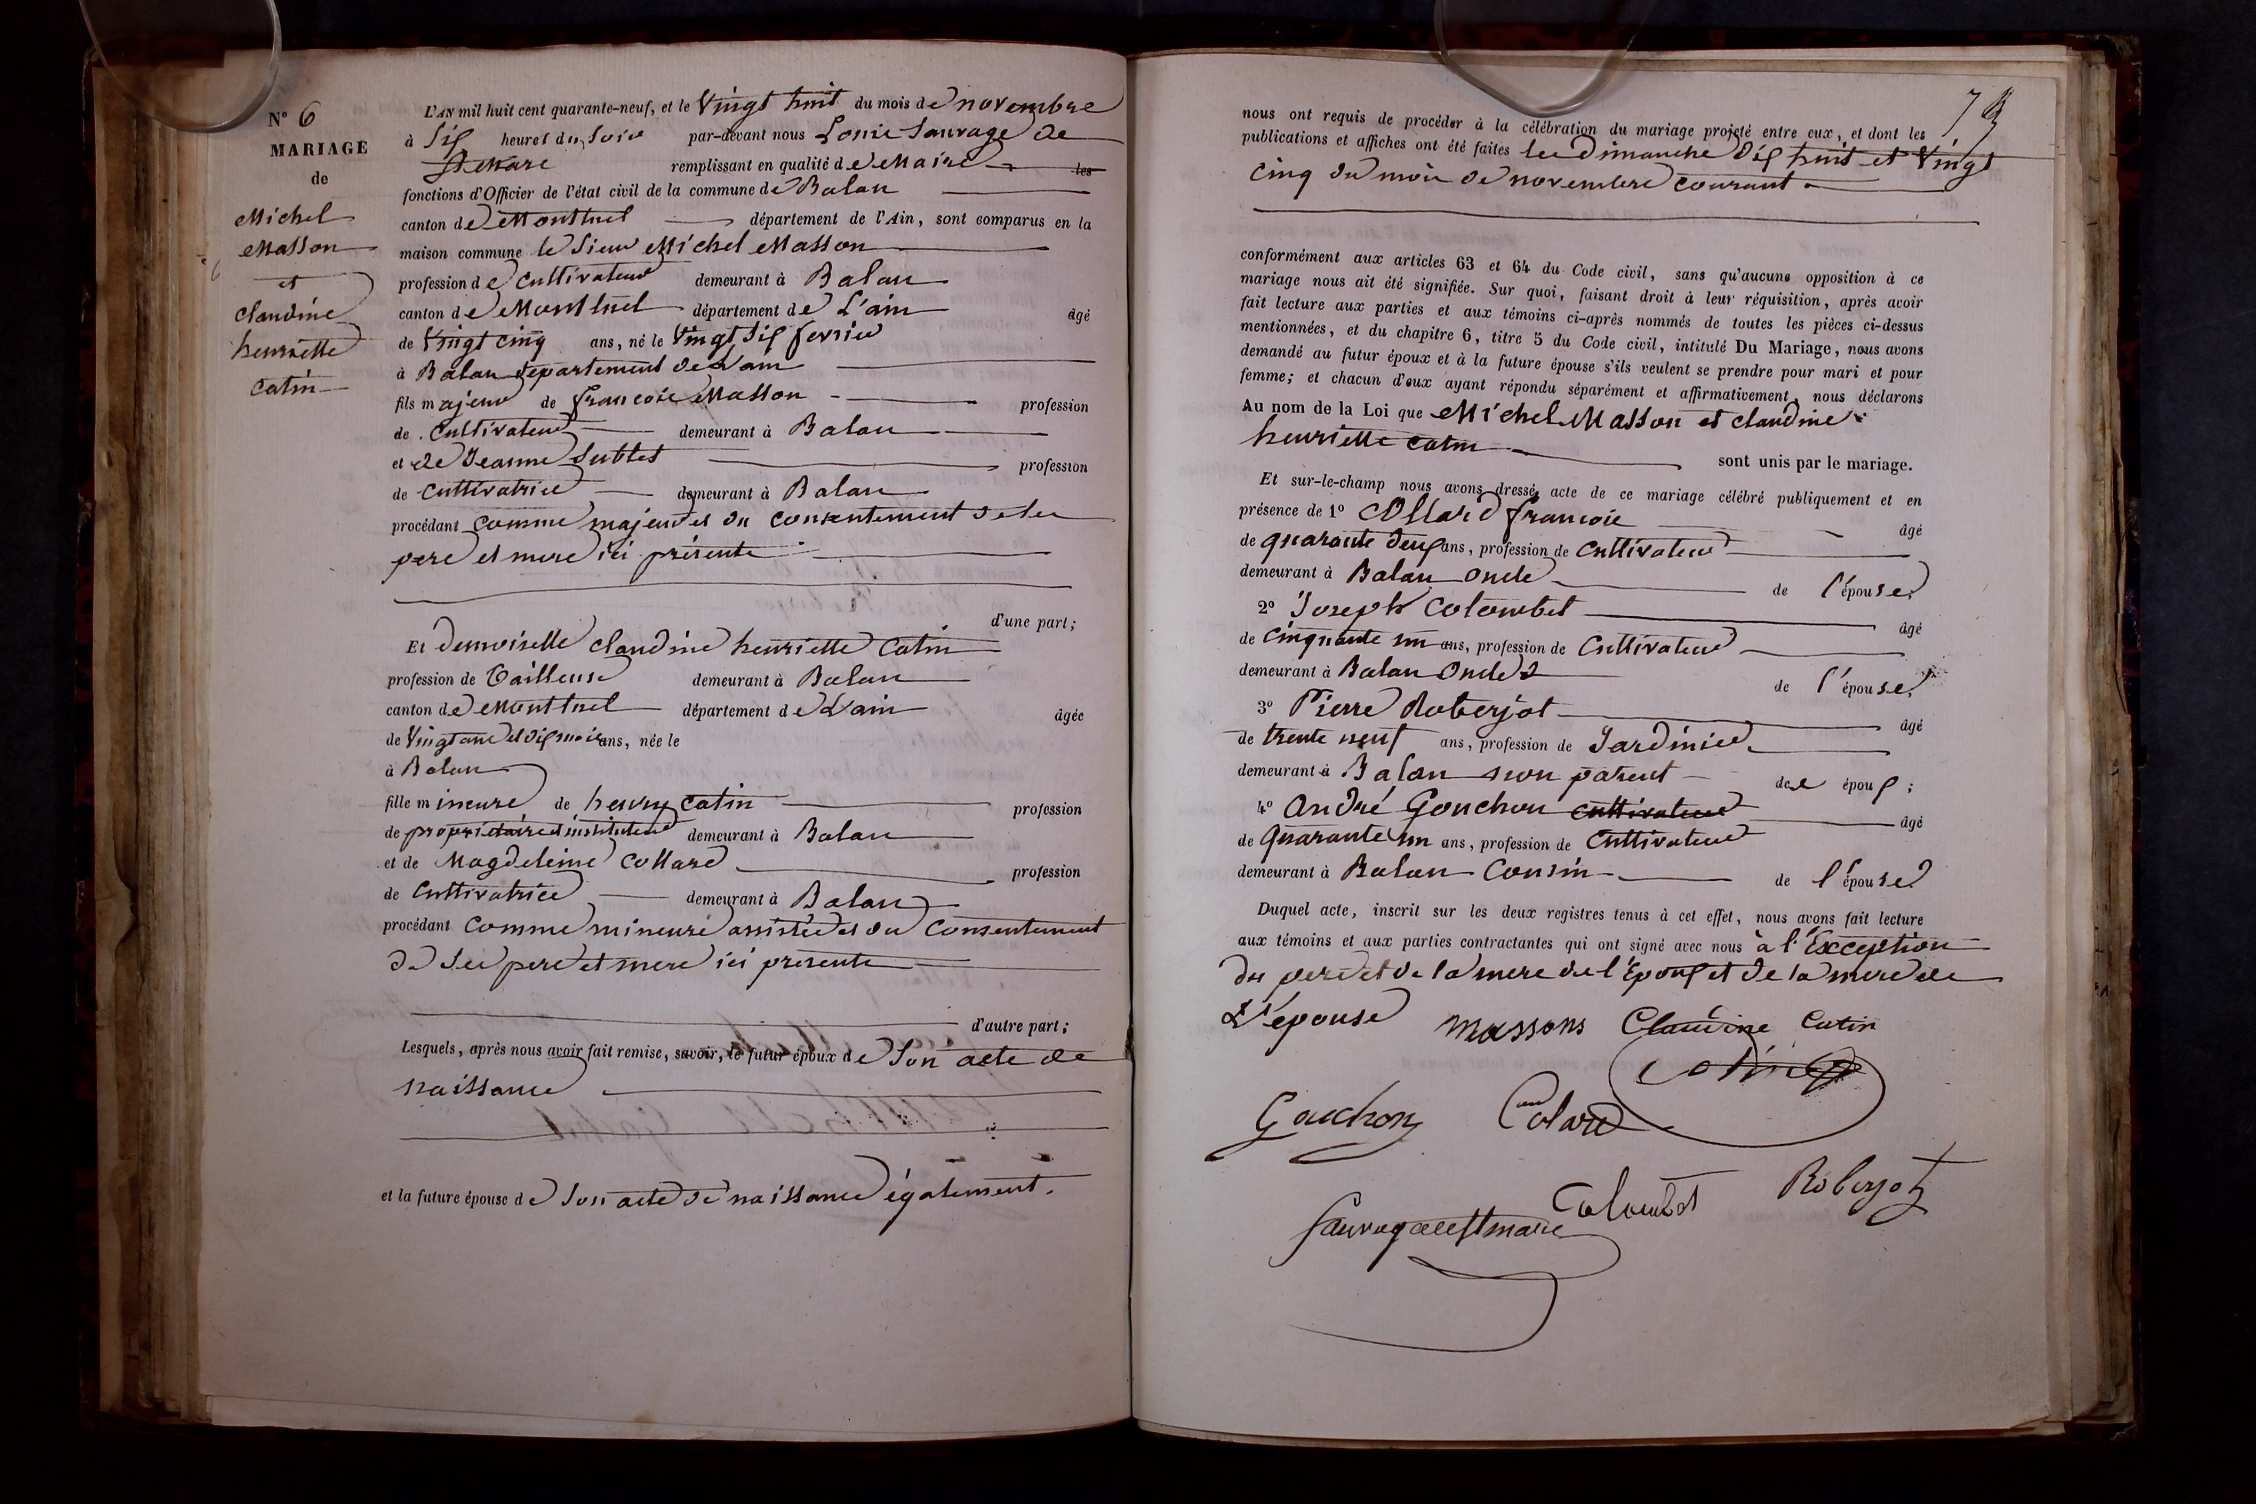 N° 6
MARIAGE
de
Michel
Masson
et
Claudine
henriette
Catin
L'AN mil huit cent quarante-neuf, et le Vingt huit du mois de novembre
à Six heures du Soir par-devant nous Louis Sauvage de
St Marc remplissant en qualité de Maire les
fonctions d'Officier de l'état civil de la commune de Balan
canton de Montluel département de l'Ain, sont comparus en la
maison commune le Sieur Michel Masson
profession de Cultivateur demeurant à Balan
canton de Montluel département de L'ain âgé
de Vingt cinq ans, né le Vingt Six fevrier
à Balan departement de Lain
fils majeur de francois Masson profession
de Cultivateur demeurant à Balan
et de Jeanne Subtet profession
de Cultivatrice demeurant à Balan
procédant comme majeur et du consentement de ses
pere et mere ici présents
d'une part;
Et demoiselle claudine henriette Catin
profession de Tailleuse demeurant à Balan
canton de Montluel département de Lain âgée
de Vingt ans et dix mois ans, née le
à Balan
fille mineure de henry Catin profession
de propriétaire et instituteur demeurant à Balan
et de Magdeleine Collard profession
de Cultivatrice demeurant à Balan
procédant Comme mineure assistée et du Consentement
de Ses pere et mere ici presents
d'autre part;
Lesquels, après nous avoir fait remise, savoir, le futur époux de Son acte de
naissance
et la future épouse de Son acte de naissance également.
73
nous ont requis de procéder à la célébration du mariage projeté entre eux, et dont les
publications et affiches ont été faites les Dimanche dix huit et Vingt
Cinq du mois de novembre courant
conformément aux articles 63 et 64 du Code civil, sans qu'aucune opposition à ce
mariage nous ait été signifiée. Sur quoi, faisant droit à leur réquisition, après avoir
fait lecture aux parties et aux témoins ci-après nommés de toutes les pièces ci-dessus
mentionnées, et du chapitre 6, titre 5 du Code civil, intitulé Du Mariage, nous avons
demandé au futur époux et à la future épouse s'ils veulent se prendre pour mari et pour
femme; et chacun d'eux ayant répondu séparément et affirmativement, nous déclarons
Au nom de la Loi que Michel Masson et Claudine
henriette Catin sont unis par le mariage.
Et sur-le-champ nous avons dressé acte de ce mariage célébré publiquement et en
présence de 1° Collard francois âgé
de quarante deux ans, profession de Cultivateur
demeurant à Balan oncle de l'épouse
2° Joseph Colombet âgé
de Cinquante un ans, profession de Cultivateur
demeurant à Balan Oncle de l'épouse
3° Pierre Roberjot âgé
de trente neuf ans, profession de Jardinier
demeurant à Balan non parent des époux;
4° André Gouchon cultivateur âgé
de Quarante un ans, profession de Cultivateur
demeurant à Balan Cousin de l'épouse
Duquel acte, inscrit sur les deux registres tenus à cet effet, nous avons fait lecture
aux témoins et aux parties contractantes qui ont signé avec nous à l'Exception
du pere et de la mere de l'Epoux et de la mere de
L'épouse massons Claudine Catin
Catin
Gouchon Colard
Colombet Roberjot
Sauvage de St marc